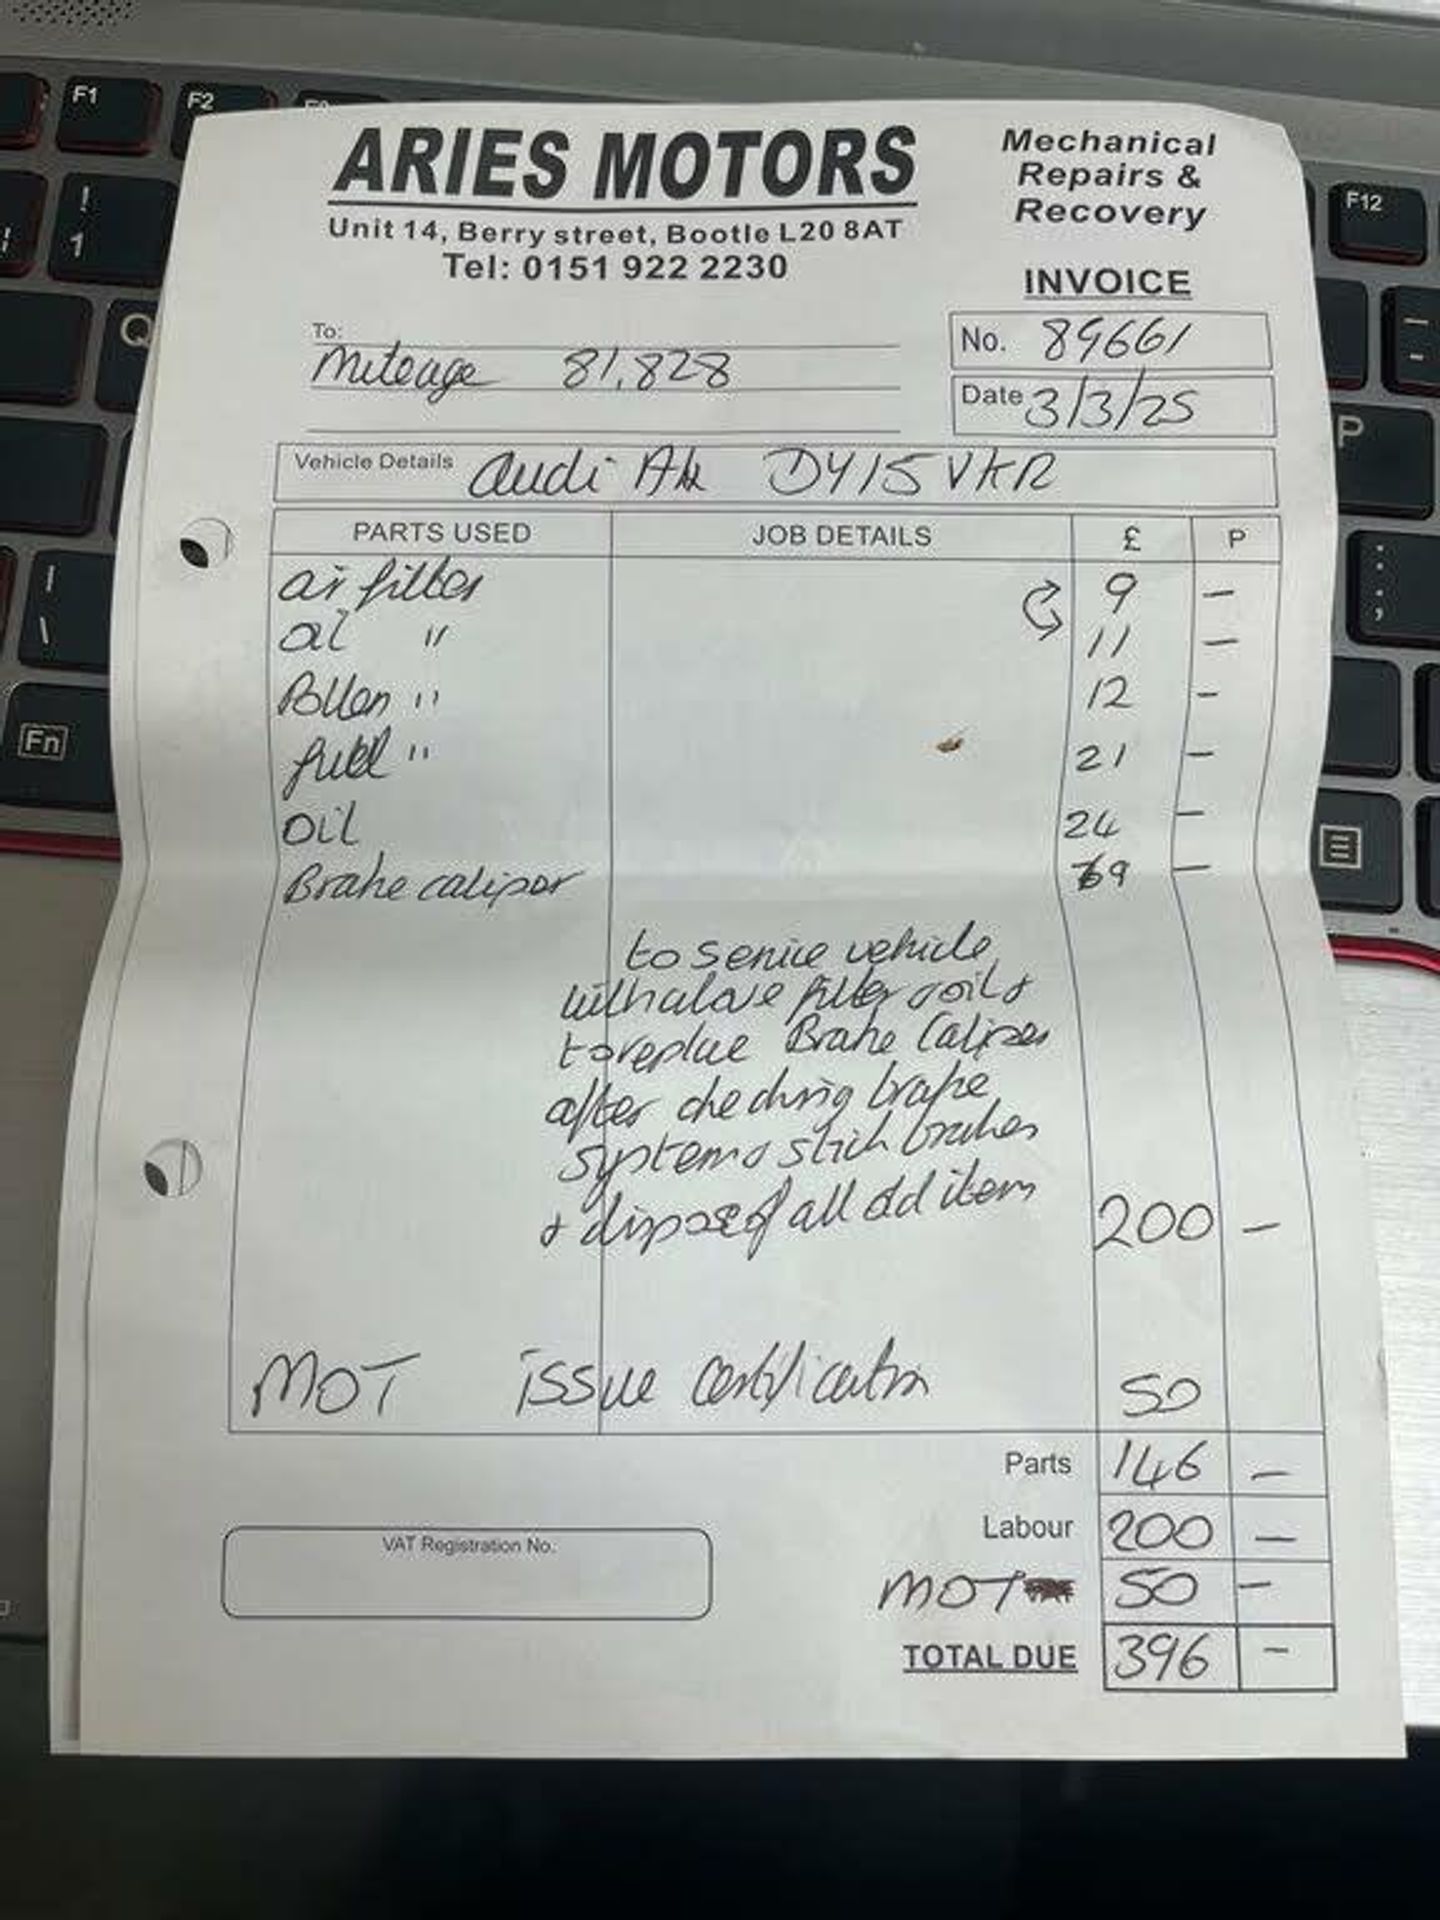 F1
F2
F12
!
1
Q
P
Fn
ARIES MOTORS
Unit 14, Berry street, Bootle L20 8AT
Tel: 0151 922 2230
Mechanical
Repairs &
Recovery
INVOICE
No. 89661
Date 3/3/25
To:
Mileage 81,828
Vehicle Details Audi A4 DY15 VKR
PARTS USED JOB DETAILS £ P
air filter 9 —
oil " 11 —
Pollen " 12 -
fuel " 21 —
Oil 24 —
Brake caliper 69 —
to service vehicle
with above filter & oil &
to replace Brake Caliper
after checking brake
system & stick brakes
& dispose of all old item 200 —
MOT issue certification 50
Parts 146 —
Labour 200 —
MOT 50 —
TOTAL DUE 396 -
VAT Registration No.